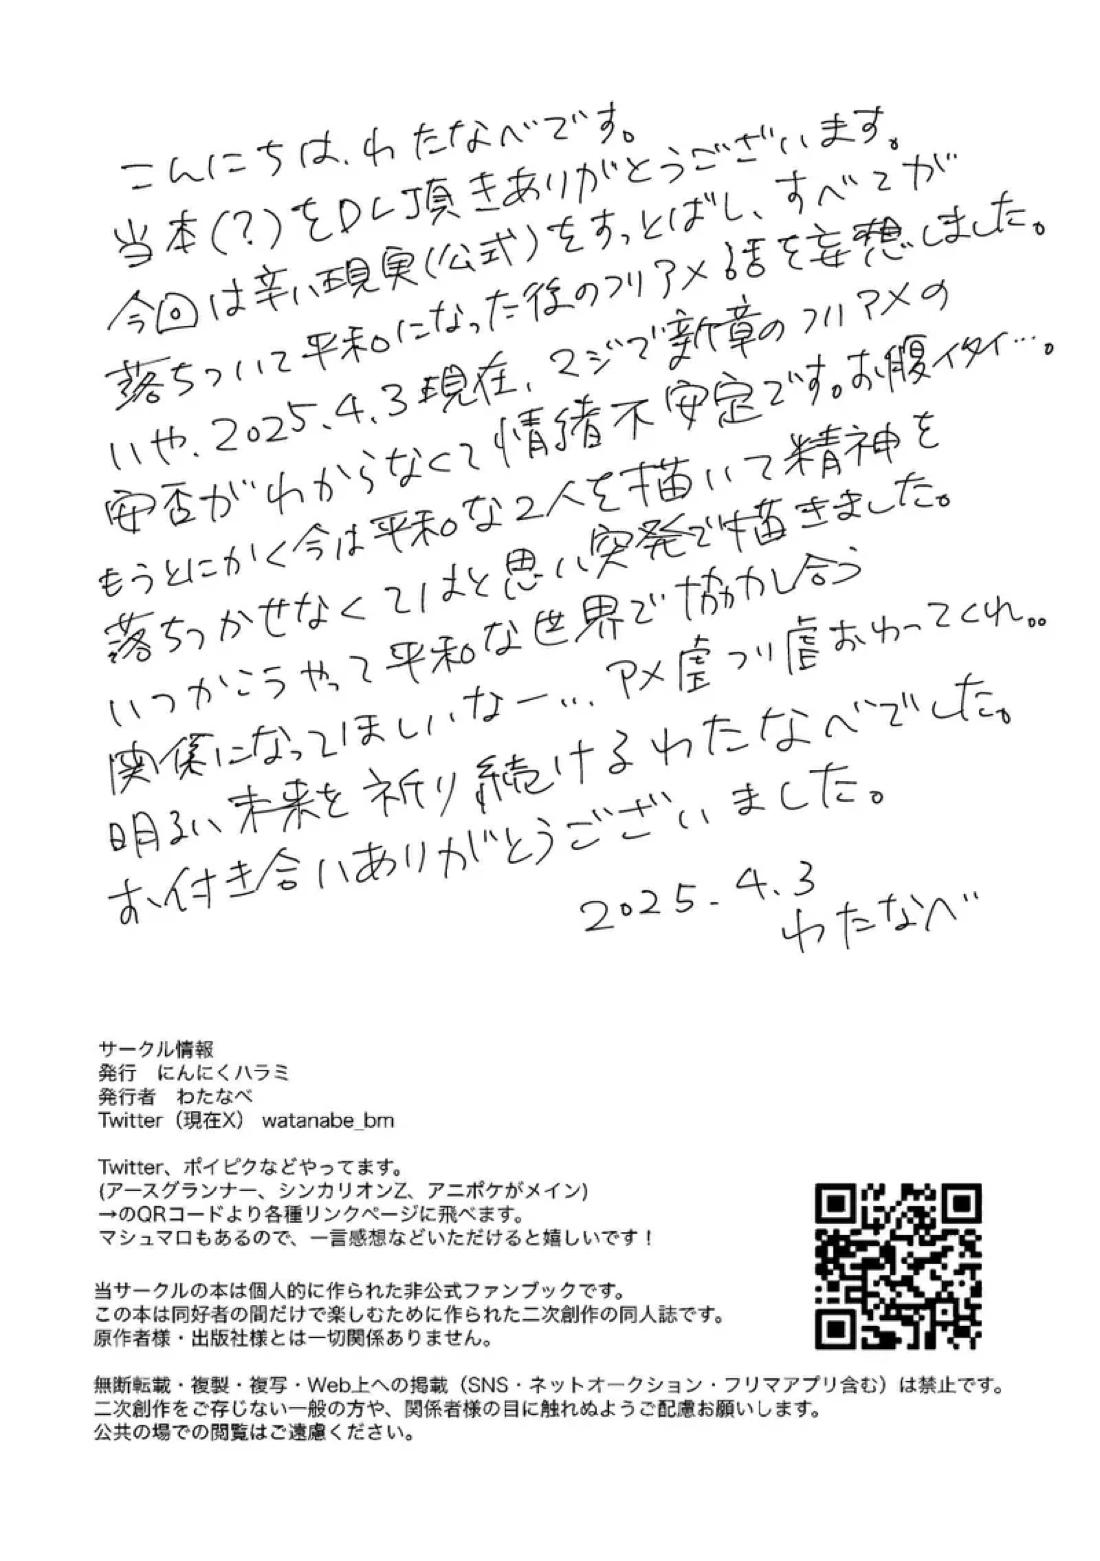 こんにちは、わたなべです。
当本(?)をDL頂きありがとうございます。
今回は辛い現実(公式)をすっとばし、すべてが
落ちついて平和になった後のフリアメ話を妄想しました。
いや、2025.4.3現在、マジで新章のフリアメの
安否がわからなくて情緒不安定です。お腹イタイ…。
もうとにかく今は平和な2人を描いて精神を
落ちつかせなくてはと思い突発で描きました。
いつかこうやって平和な世界で協力し合う
関係になってほしいなー…、アメ虐フリ虐おわってくれ。。
明るい未来を祈り続けるわたなべでした。
お付き合いありがとうございました。
2025.4.3
わたなべ
サークル情報
発行　にんにくハラミ
発行者　わたなべ
Twitter（現在X） watanabe_bm
Twitter、ポイピクなどやってます。
(アースグランナー、シンカリオンZ、アニポケがメイン)
→のQRコードより各種リンクページに飛べます。
マシュマロもあるので、一言感想などいただけると嬉しいです！
当サークルの本は個人的に作られた非公式ファンブックです。
この本は同好者の間だけで楽しむために作られた二次創作の同人誌です。
原作者様・出版社様とは一切関係ありません。
無断転載・複製・複写・Web上への掲載（SNS・ネットオークション・フリマアプリ含む）は禁止です。
二次創作をご存じない一般の方や、関係者様の目に触れぬようご配慮お願いします。
公共の場での閲覧はご遠慮ください。